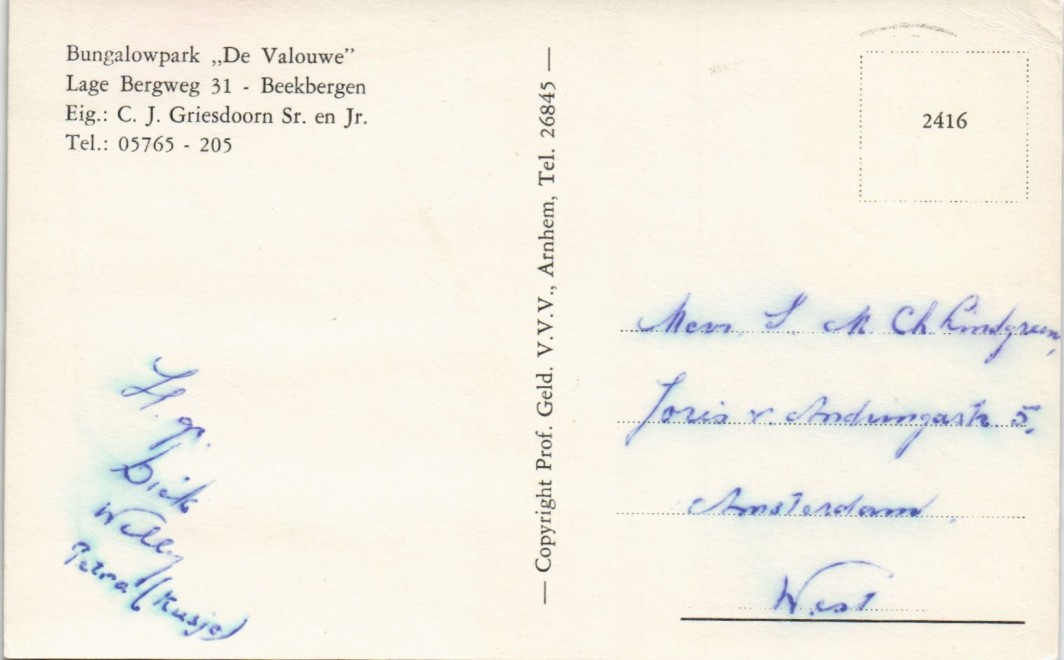 Bungalowpark „De Valouwe”
Lage Bergweg 31 - Beekbergen
Eig.: C. J. Griesdoorn Sr. en Jr.
Tel.: 05765 - 205
— Copyright Prof. Geld. V.V.V., Arnhem, Tel. 26845 —
2416
Mevr. S. M Ch Lindgreen,
Joris v. Andringastr. 5,
Amsterdam,
West
H. gr.
Dick
Willy
Petra (Kusje)